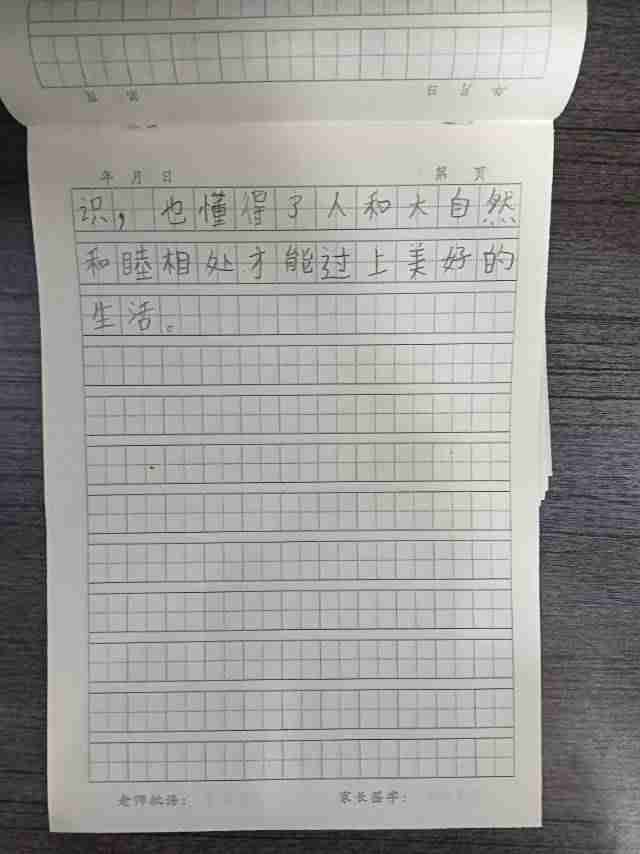 年 月 日 第 页
识，也懂得了人和大自然
和睦相处才能过上美好的
生活。
老师批语： 家长签字：